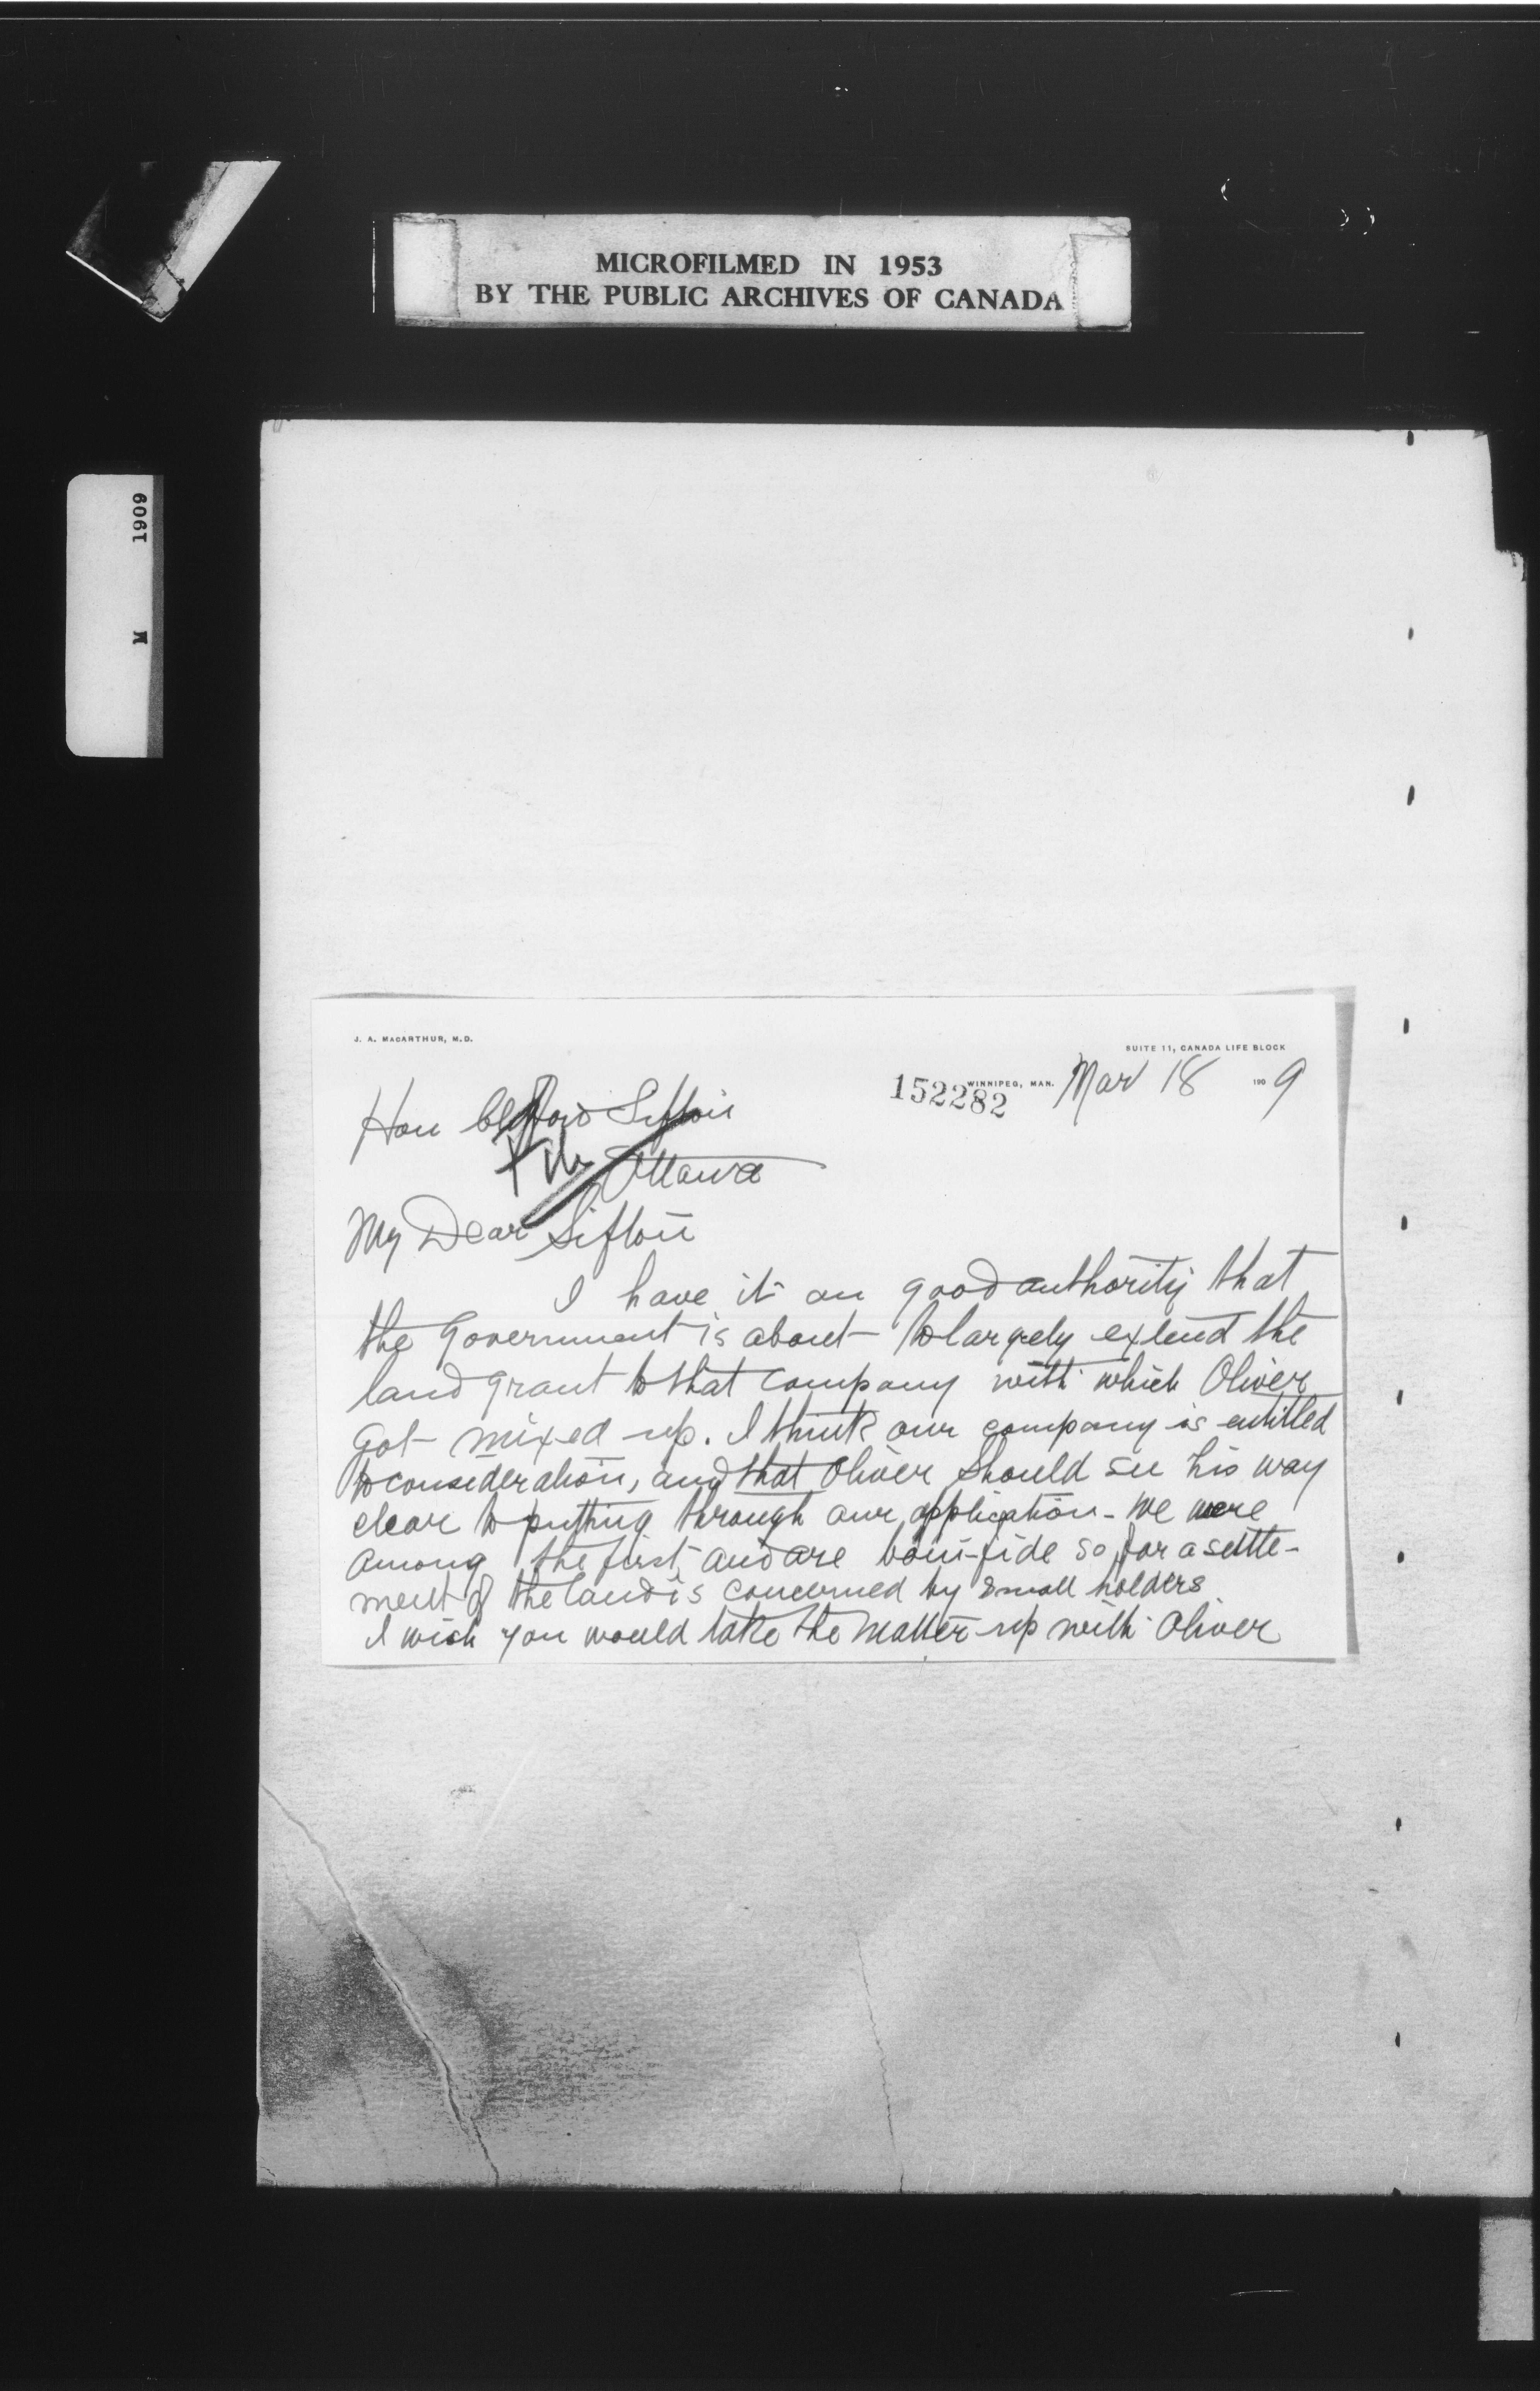 MICROFILMED IN 1953
BY THE PUBLIC ARCHIVES OF CANADA
M 1909
J. A. MACARTHUR, M.D.
SUITE 11, CANADA LIFE BLOCK
152282 WINNIPEG, MAN. Mar 18 1909
Hon Clifford Sifton
File Ottawa
My Dear Sifton
I have it on good authority that
the Government is about to largely extend the
land grant to that company with which Oliver
got mixed up. I think our company is entitled
to consideration, and that Oliver should see his way
clear to putting through our application - We were
among the first, and are boni-fide so far a settle-
ment of the land is concerned by small holders
I wish you would take the matter up with Oliver